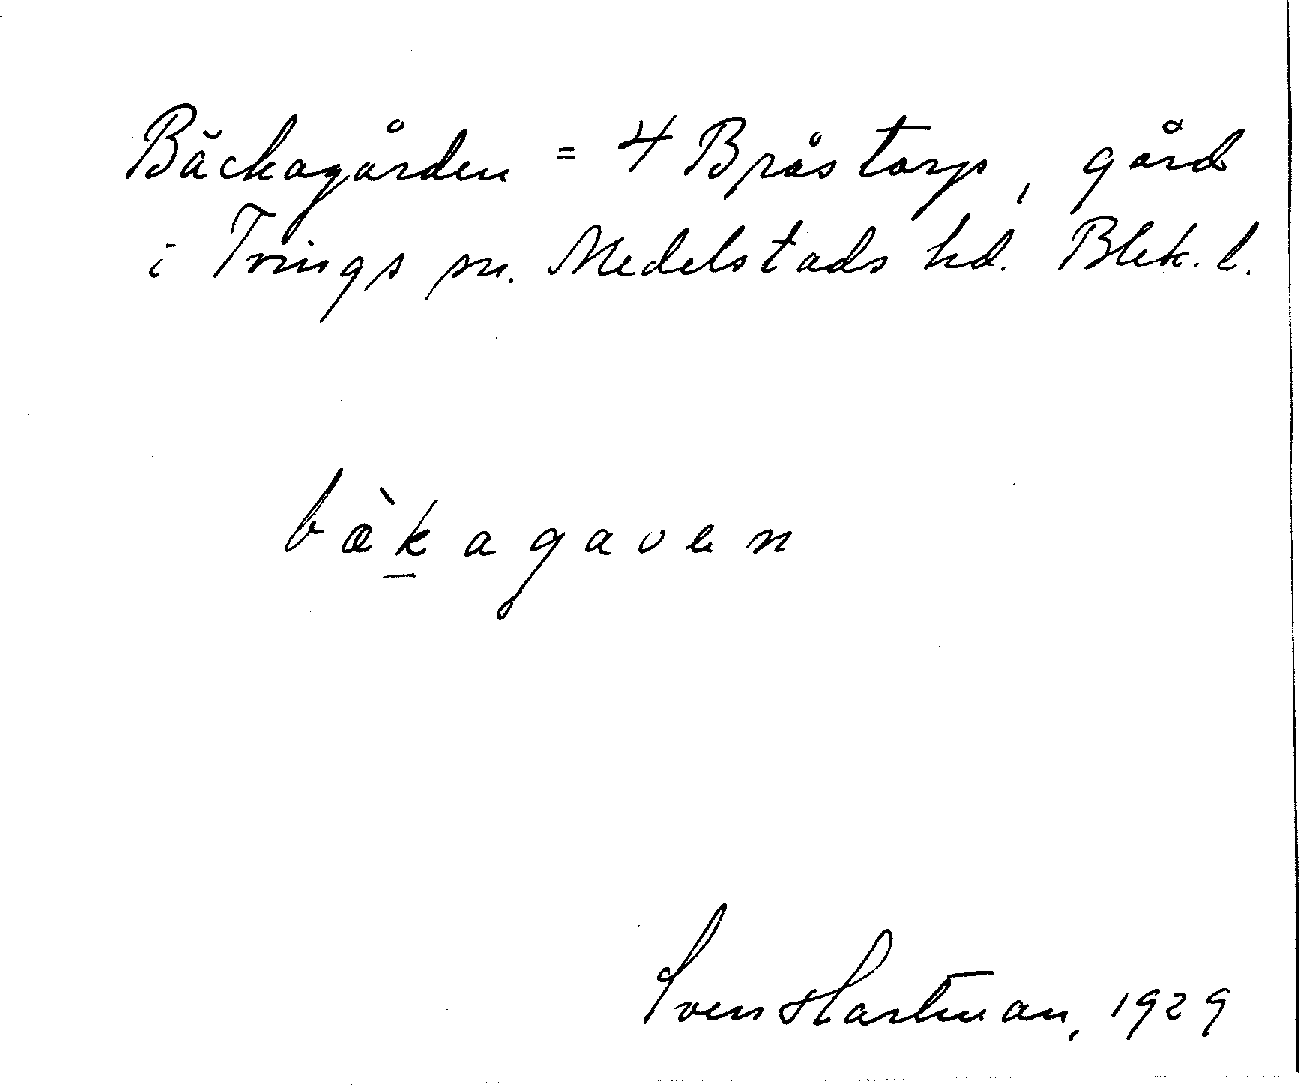 Bäckagården = 4 Bråstorp, gård
i Tvings sn. Medelstads hd. Blek. l.
bæ̀k̲agaven
Sven Hartman, 1929